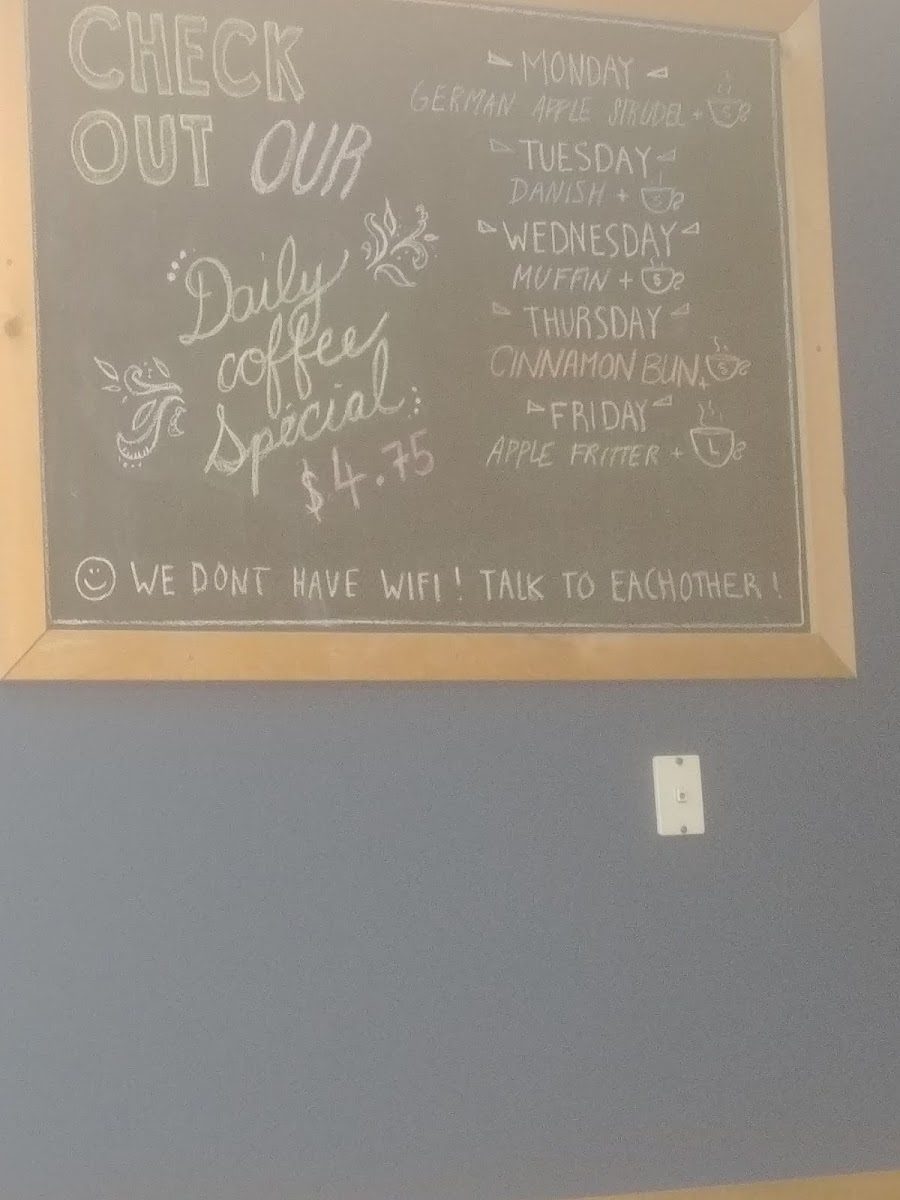 CHECK
OUT OUR
Daily
coffee
Special
$4.75
MONDAY
GERMAN APPLE STRUDEL + S
TUESDAY
DANISH + S
WEDNESDAY
MUFFIN + S
THURSDAY
CINNAMON BUN + S
FRIDAY
APPLE FRITTER + L
WE DONT HAVE WIFI! TALK TO EACHOTHER!